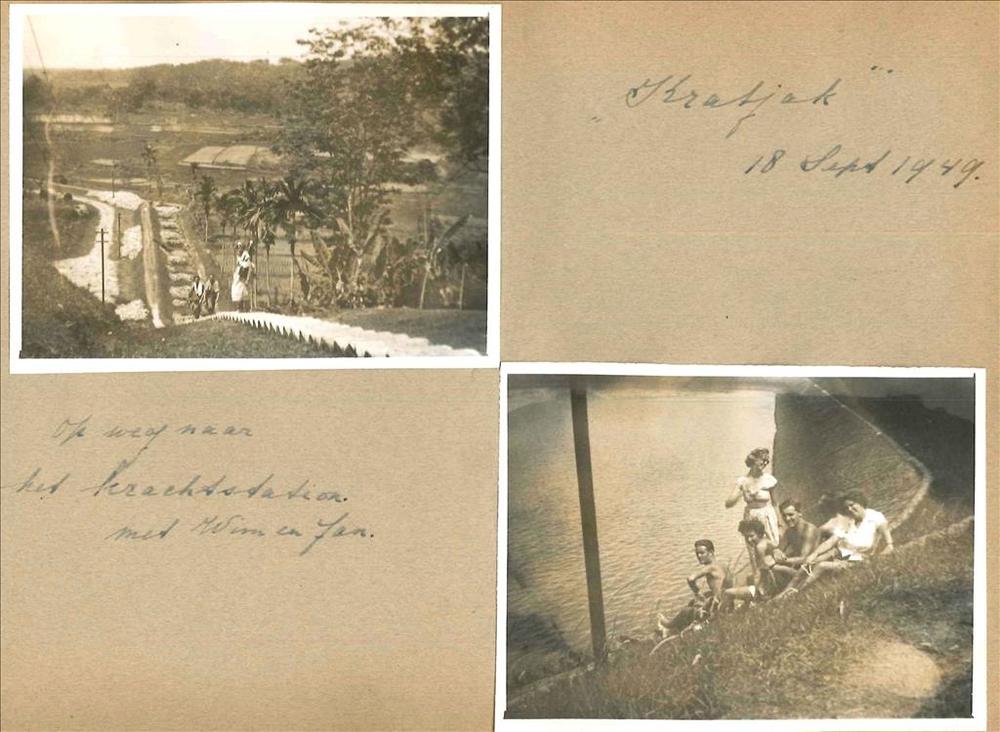 „Kratjak"
18 Sept 1949.
Op weg naar
het krachtstation.
met Wim en Jan.